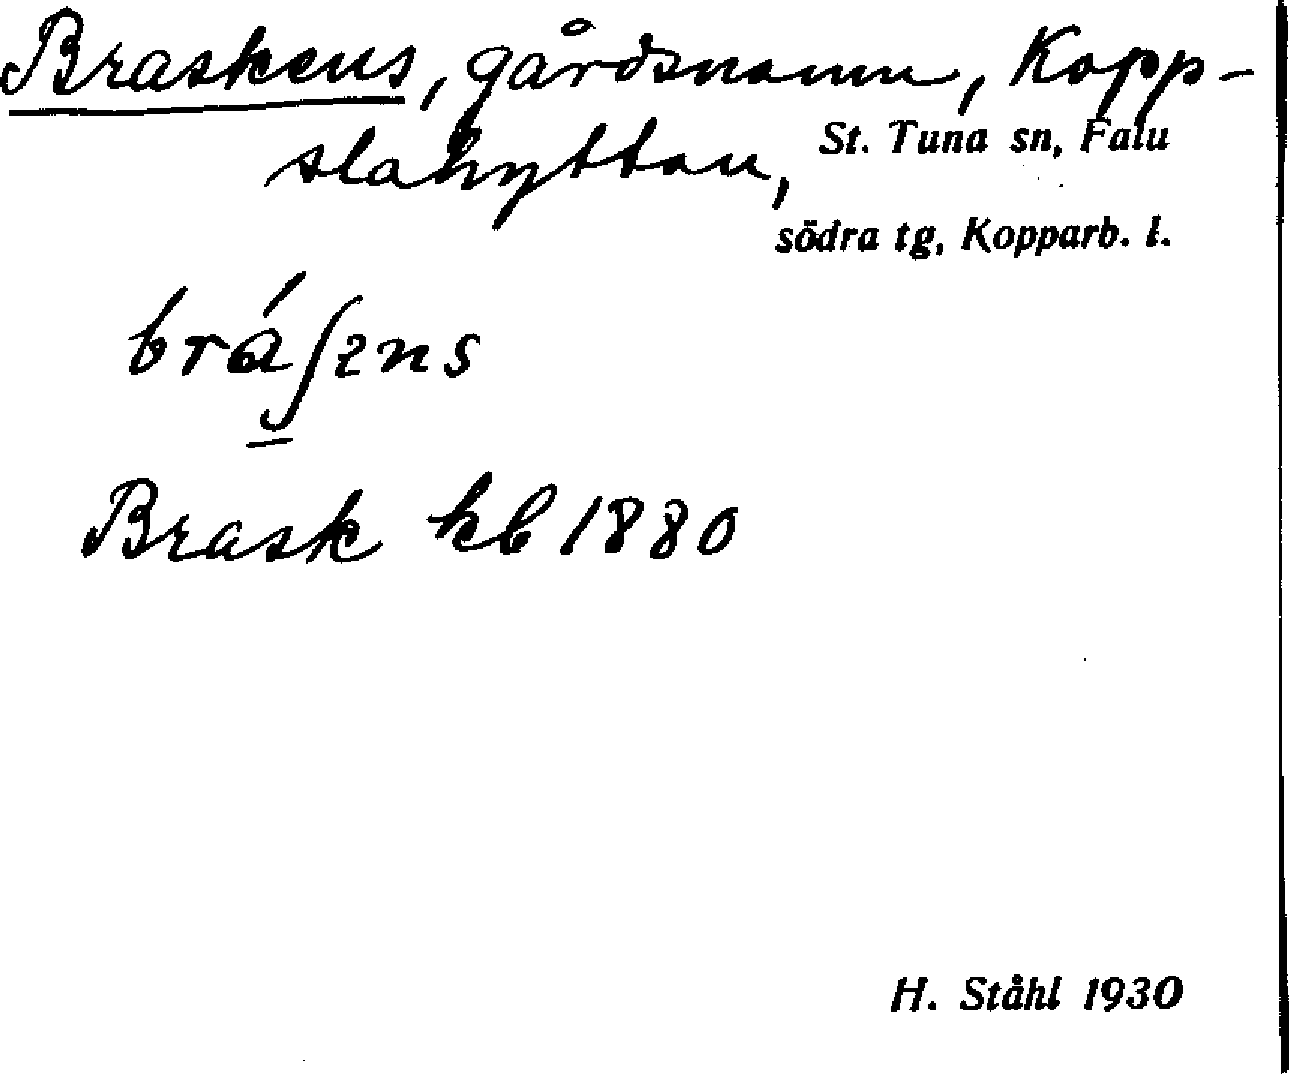 Braskens, gårdsnamn, Kopp-
slahyttan, St. Tuna sn, Falu
södra tg, Kopparb. l.
bráʃens
Brask kb 1880
H. Ståhl 1930